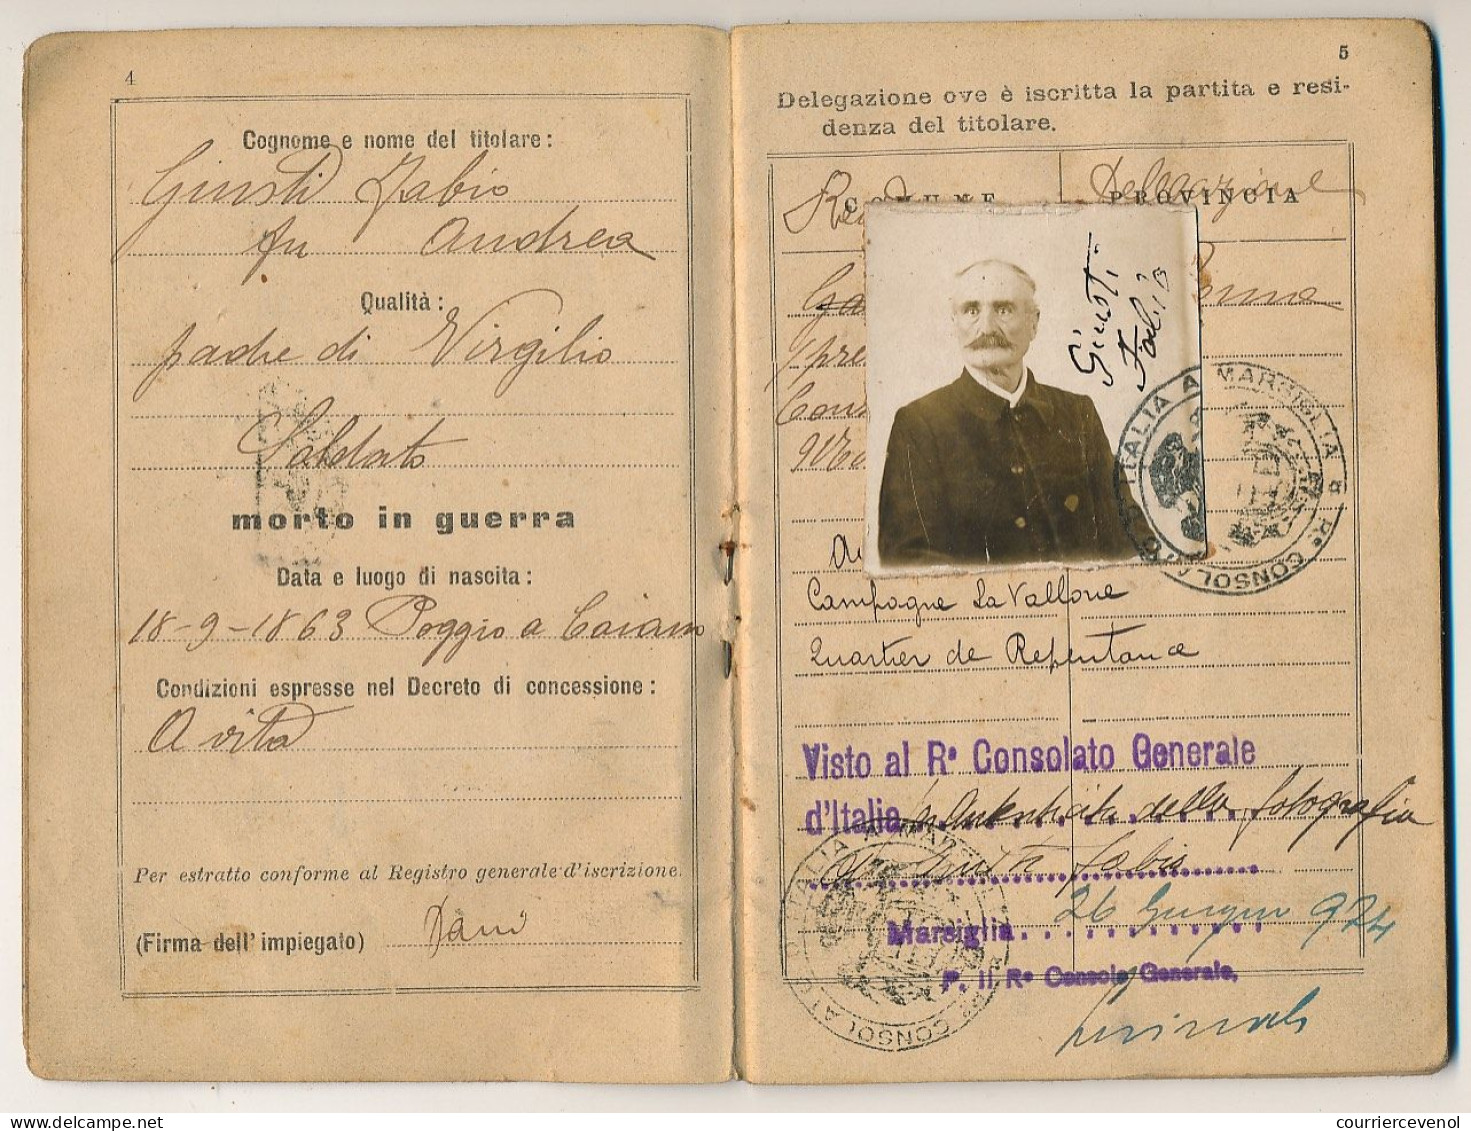 4
Cognome e nome del titolare:
Giusti Fabio
fu Andrea
Qualità:
padre di Virgilio
Soldato
morto in guerra
Data e luogo di nascita:
18-9-1863 Poggio a Caiano
Condizioni espresse nel Decreto di concessione:
A vita
Per estratto conforme al Registro generale d'iscrizione.
(Firma dell'impiegato)
5
Delegazione ove è iscritta la partita e resi-
denza del titolare.
COMUNE PROVINCIA
Delegazione
Giusti
Fabio
R° CONSOLATO D'ITALIA A MARSIGLIA
Campagne La Vallone
Quartier de Repentance
Visto al R° Consolato Generale
d'Italia autenticità della fotografia
di Giusti Fabio
Marsiglia 26 Giugno 924
P. Il R° Console Generale,
R° CONSOLATO D'ITALIA A MARSIGLIA
courriercevenol